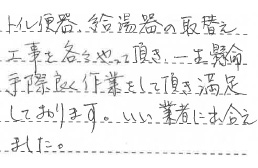 トイレ便器、給湯器の取替え
工事を各々やって頂き、一生懸命
手際良く作業をして頂き満足
しております。いい業者に出会え
ました。